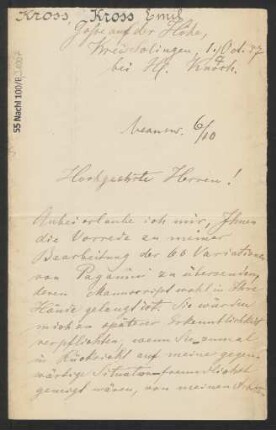 Kross, Kross Emil
auf der Höhe,
Kreuzlingen, 1. Oct.
bei Hf.
55 Nachl 100/E
6/10
Hochgeehrte Herren!
Anbei erlaube ich mir, Ihnen
die Vorrede zu meiner
Bearbeitung der 60 Variationen
von Paganini zu übersenden,
deren Manuscript wohl in Ihre
Hände gelangt ist. Sie würden
mich zu späterer Erkenntlichkeit
verpflichten, wenn Sie zumal
in Rücksicht auf meine gegen-
wärtige Situation freundlichst
geneigt wären, von meinen